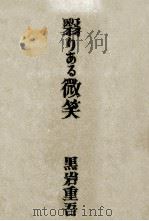 翳りある微笑
黒岩重吾